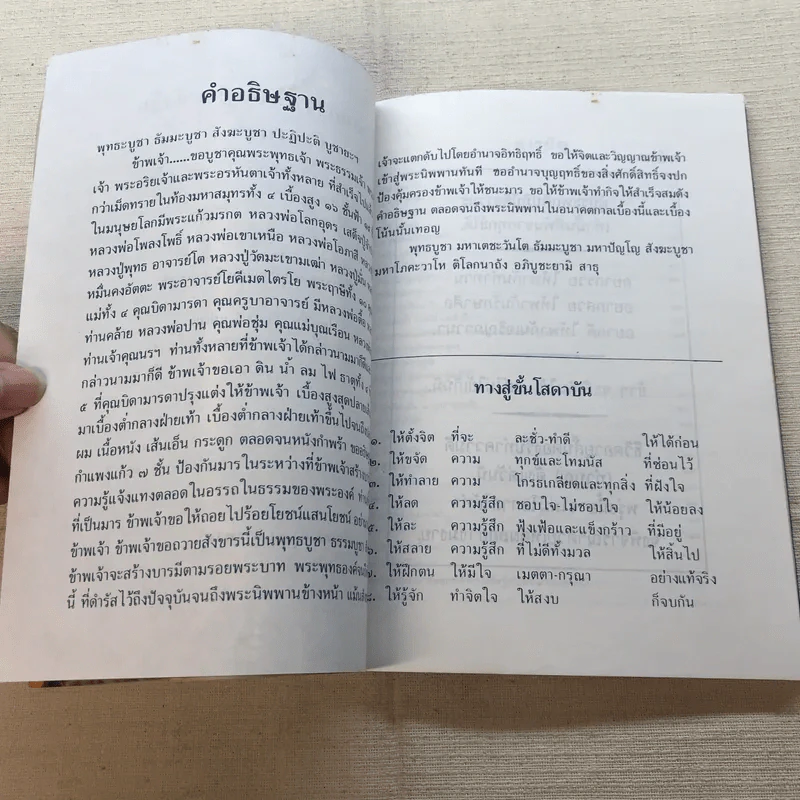 คำอธิษฐาน
พุทธะบูชา ธัมมะบูชา สังฆะบูชา ปะฏิปะติ บูชายะฯ
ข้าพเจ้า......ขอบูชาคุณพระพุทธเจ้า พระธรรมเจ้า
เจ้า พระอริยเจ้าและพระอรหันตาเจ้าทั้งหลาย ที่สำเร็จ
กว่าเม็ดทรายในท้องมหาสมุทรทั้ง ๔ เบื้องสูง ๑๖ ชั้นฟ้า
ในมนุษย์โลกมีพระแก้วมรกต หลวงพ่อโลกอุดร เสด็จปู่
หลวงพ่อโพลงโพธิ์ หลวงพ่อเขาเหนือ หลวงพ่อโอภาสี
หลวงปู่พุทธ อาจารย์โต หลวงปู่วัดมะเขามเฒ่า หลวงปู่
หมื่นคงอัตตะ พระอาจารย์โยคีเมตไตรโย พระฤาษีทั้ง ๑๐
แม่ทั้ง ๔ คุณบิดามารดา คุณครูบาอาจารย์ มีหลวงพ่อ
ท่านคล้าย หลวงพ่อปาน คุณพ่อชุ่ม คุณแม่บุญเรือน
ท่านเจ้าคุณนรฯ ท่านทั้งหลายที่ข้าพเจ้าได้กล่าวนามมาก็ดี
กล่าวนามมาก็ดี ข้าพเจ้าขอเอา ดิน น้ำ ลม ไฟ ธาตุทั้ง
๕ ที่คุณบิดามารดาปรุงแต่งให้ข้าพเจ้า เบื้องสูงสุดปลาย
มาเบื้องต่ำกลางฝ่ายเท้า เบื้องต่ำกลางฝ่ายเท้าขึ้นไปจน
ผม เนื้อหนัง เส้นเอ็น กระดูก ตลอดจนหนังกำพร้า
กำแพงแก้ว ๗ ชั้น ป้องกันมารในระหว่างที่ข้าพเจ้าสร้าง
ความรู้แจ้งแทงตลอดในอรรถในธรรมของพระองค์
ที่เป็นมาร ข้าพเจ้าขอให้ถอยไปร้อยโยชน์แสนโยชน์
ข้าพเจ้า ข้าพเจ้าขอถวายสังขารนี้เป็นพุทธบูชา ธรรมบูชา
ข้าพเจ้าจะสร้างบารมีตามรอยพระบาท พระพุทธองค์
นี้ ที่ดำรัสไว้ถึงปัจจุบันจนถึงพระนิพพานข้างหน้า
เจ้าจะแตกดับไปโดยอำนาจอิทธิฤทธิ์ ขอให้จิตและวิญญาณข้าพเจ้า
เข้าสู่พระนิพพานทันที ขออำนาจบุญฤทธิ์ของสิ่งศักดิ์สิทธิ์จงปก
ป้องคุ้มครองข้าพเจ้าให้ชนะมาร ขอให้ข้าพเจ้าทำกิจให้สำเร็จสมดัง
คำอธิษฐาน ตลอดจนถึงพระนิพพานในอนาคตกาลเบื้องนี้และเบื้อง
โน้นนั้นเทอญ
พุทธบูชา มหาเตชะวันโต ธัมมะบูชา มหาปัญโญ สังฆะบูชา
มหาโภคะวาโห ติโลกนาถัง อภิบูชะยามิ สาธุ
ทางสู่ขั้นโสดาบัน
๑. ให้ตั้งจิต ที่จะ ละชั่ว-ทำดี ให้ได้ก่อน
๒. ให้ขจัด ความ ทุกข์และโทมนัส ที่ซ่อนไว้
๓. ให้ทำลาย ความ โกรธเกลียดและทุกสิ่ง ที่ฝังใจ
๔. ให้ลด ความรู้สึก ชอบใจ-ไม่ชอบใจ ให้น้อยลง
๕. ให้ละ ความรู้สึก ฟุ้งเฟ้อและแข็งกร้าว ที่มีอยู่
๖. ให้สลาย ความรู้สึก ที่ไม่ดีทั้งมวล ให้สิ้นไป
๗. ให้ฝึกตน ให้มีใจ เมตตา-กรุณา อย่างแท้จริง
๘. ให้รู้จัก ทำจิตใจ ให้สงบ ก็จบกัน